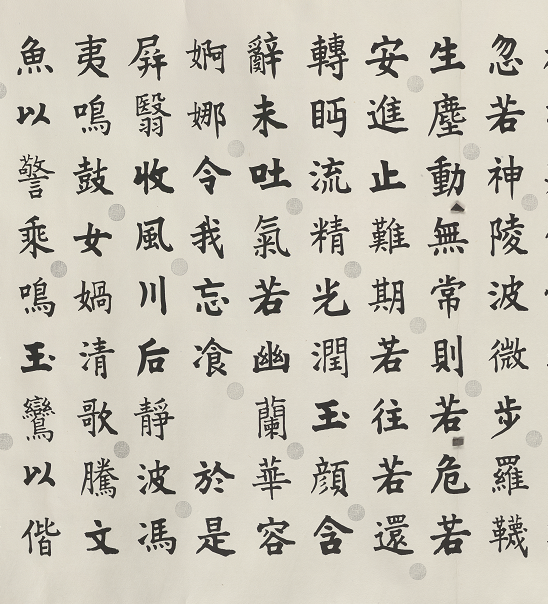 忽若神陵波微步羅韈
生塵動無常則若危若
安進止難期若往若還
轉眄流精光潤玉顏含
辭未吐氣若幽蘭華容
婀娜令我忘飡於是
屏翳收風川后靜波馮
夷鳴鼓女媧清歌騰文
魚以警乘鳴玉鸞以偕